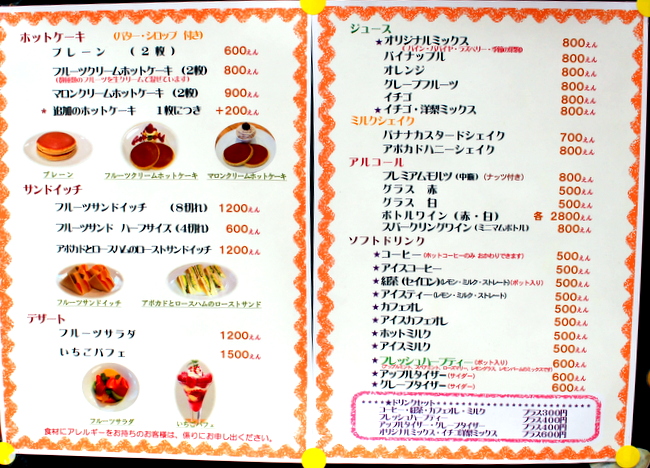 ホットケーキ (バター・シロップ 付き)
プレーン (2枚) 600えん
フルーツクリームホットケーキ (2枚) 800えん
マロンクリームホットケーキ (2枚) 900えん
★ 追加のホットケーキ 1枚につき +200えん
プレーン フルーツクリームホットケーキ マロンクリームホットケーキ
サンドイッチ
フルーツサンドイッチ (8切れ) 1200えん
フルーツサンド ハーフサイズ(4切れ) 600えん
アボカドとロースハムのローストサンドイッチ 1200えん
フルーツサンドイッチ アボカドとロースハムのローストサンド
デザート
フルーツサラダ 1200えん
いちごパフェ 1500えん
フルーツサラダ いちごパフェ
食材にアレルギーをお持ちのお客様は、係りにお申し出ください。
ジュース
★オリジナルミックス 800えん
パイナップル 800えん
オレンジ 800えん
グレープフルーツ 800えん
イチゴ 800えん
★イチゴ・洋梨ミックス 800えん
ミルクシェイク
バナナカスタードシェイク 700えん
アボカドハニーシェイク 800えん
アルコール
プレミアムモルツ(中瓶)(ナッツ付き) 800えん
グラス 赤 500えん
グラス 白 500えん
ボトルワイン(赤・白) 各 2800えん
スパークリングワイン(ミニマムボトル) 800えん
ソフトドリンク
★コーヒー(ホットコーヒーのみ おかわりできます) 500えん
★アイスコーヒー 500えん
★紅茶(セイロン)(レモン・ミルク・ストレート)(ポット入り) 500えん
★アイスティー(レモン・ミルク・ストレート) 500えん
★カフェオレ 500えん
★アイスカフェオレ 500えん
★ホットミルク 500えん
★アイスミルク 500えん
★フレッシュハーブティー(ポット入り) 600えん
★アップルタイザー(サイダー) 600えん
★グレープタイザー(サイダー) 600えん
★ドリンクセット
コーヒー・紅茶・カフェオレ・ミルク プラス300円
フレッシュハーブティー プラス400円
アップルタイザー・グレープタイザー プラス400円
オリジナルミックス・イチゴ洋梨ミックス プラス600円